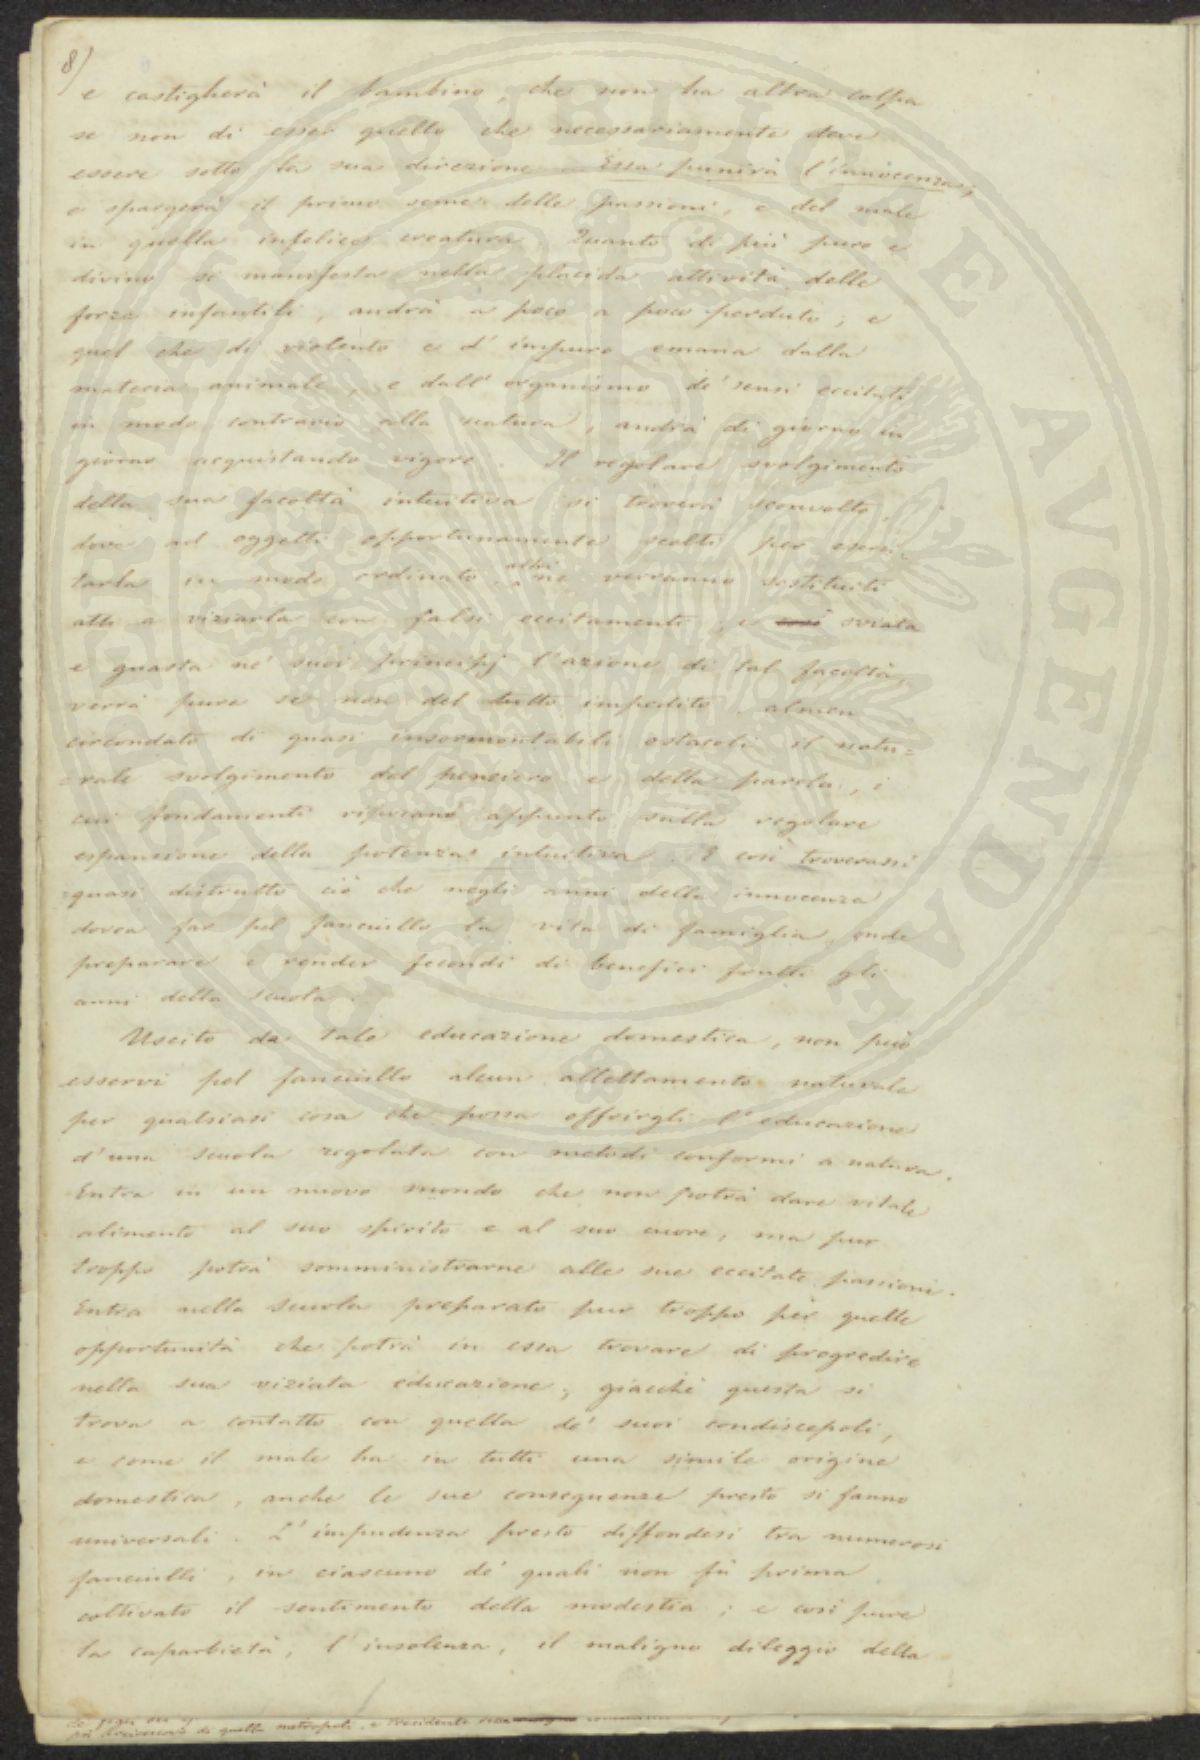 8)
e castigherà il bambino, che non ha altra colpa
se non di esser quello che necessariamente deve
essere sotto la sua direzione. Essa punirà l'innocenza;
e spargerà il primo seme delle passioni, e del male
in quella infelice creatura. Quanto di più puro e
divino si manifesta nella placida attività delle
forze infantili, andrà a poco a poco perduto; e
quel che di violento e d'impuro emana dalla
materia animale, e dall'organismo de' sensi eccitati
in modo contrario alla natura, andrà di giorno in
giorno acquistando vigore. Il regolare svolgimento
della sua facoltà intuitiva si troverà sconvolto,
dove ad oggetti opportunamente scelti per eserci-
tarla in modo ordinato, altri ne verranno sostituiti
atti a viziarla con falsi eccitamenti, e così sviata
e guasta ne' suoi principj l'azione di tal facoltà,
verrà pure se non del tutto impedito almen
circondato di quasi insormontabili ostacoli il natu=
=rale svolgimento del pensiero e della parola, i
cui fondamenti riposano appunto sulla regolare
espansione della potenza intuitiva. E così troverassi
quasi distrutto ciò che negli anni della innocenza
dovea far pel fanciullo la vita di famiglia, onde
preparare e render fecondi di benefici frutti gli
anni della scuola.
Uscito da tale educazione domestica, non può
esservi pel fanciullo alcun allettamento naturale
per qualsiasi cosa che possa offrirgli l'educazione
d'una scuola regolata con metodi conformi a natura.
Entra in un nuovo mondo che non potrà dare vitale
alimento al suo spirito e al suo cuore, ma pur
troppo potrà somministrarne alle sue eccitate passioni.
Entra nella scuola preparato pur troppo per quelle
opportunità che potrà in essa trovare di progredire
nella sua viziata educazione; giacchè questa si
trova a contatto con quella de' suoi condiscepoli,
e come il male ha in tutti una simile origine
domestica, anche le sue conseguenze presto si fanno
universali. L'impudenza presto diffondesi tra numerosi
fanciulli, in ciascuno de' quali non fù prima
coltivato il sentimento della modestia; e così pure
la caparbietà, l'insolenza, il maligno dileggio della
di quella metropoli, e Presidente
PECUNIA PUBLICAE AVGENDAE